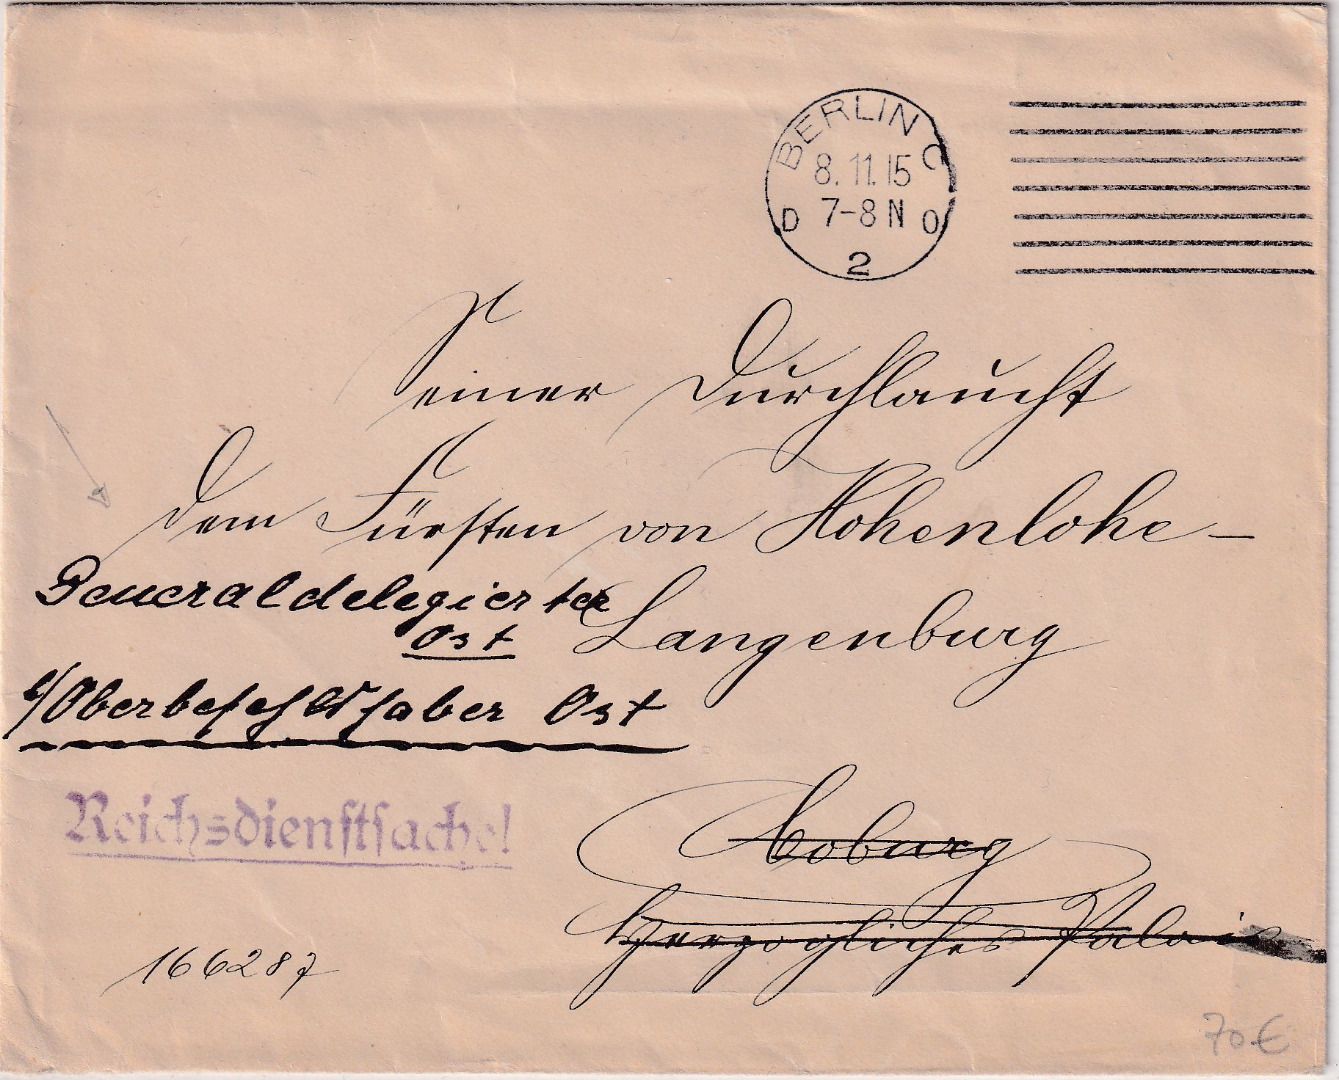 BERLIN C
8.11.15
D 7-8 N O
2
Seiner Durchlaucht
dem Fürsten von Hohenlohe-
Generaldelegierter
Ost
Langenburg
Oberbefehlshaber Ost
Reichsdienstsache!
Coburg
Herzogliches Palais
166287
70€